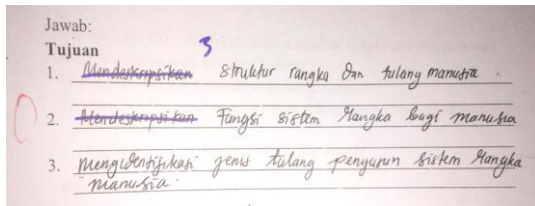 Jawab:
Tujuan 3
1. Mendeskripsikan struktur rangka dan tulang manusia.
2. Mendeskripsikan Fungsi sistem rangka bagi manusia
3. mengidentifikasi jenis tulang penyusun sistem rangka
manusia.